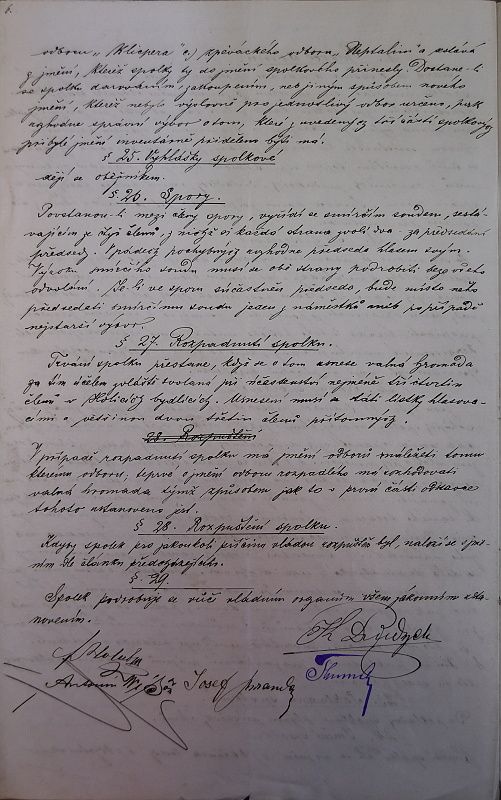 6.
odboru „Klicpera" c.) zpěváckého odboru „Neptalim" a zůstává
z jmění, kteréž spolky ty do jmění spolkového přinesly. Dostane-li
se spolku darováním, zakoupením, neb jiným způsobem nového
jmění, kteréž nebylo výslovně pro jednotlivý odbor určeno, pak
rozhodne správní výbor o tom, které z uvedených tří částí spolkových
přibylé jmění inventárně přiděleno býti má.
§ 25. Vyhlášky spolkové
dějí se oběžníkem.
§ 26. Spory.
Povstanou-li mezi členy spory, vyřídí se smírčím soudem, sestá-
vajícím ze čtyř členů, z nichž si každá strana zvolí dva za předsednictví
předsedy. V pádech pochybných rozhodne předseda hlasem svým.
Výroku smírčího soudu musí se obě strany podrobiti bez všeho
odvolání. Je-li ve sporu súčastněn předseda, bude místo něho
předsedati smírčímu soudu jeden z náměstků aneb po případě
nejstarší výbor.
§ 27. Rozpadnutí spolku.
Trvání spolku přestane, když se o tom usnese valná hromada
za tím účelem zvláště svolaná při účastenství nejméně tří čtvrtin
členů v Holicích bydlících. Usnesení musí se státi lístky hlasova-
cími a většinou dvou třetin členů přítomných.
28. Rozpuštění
V případě rozpadnutí spolku má jmění odborů náležeti tomu
kterému odboru, teprve o jmění odboru rozpadlého má rozhodovati
valná hromada týmž způsobem jak to v první části odstavce
tohoto ustanoveno jest.
§ 28. Rozpuštění spolku.
Kdyby spolek pro jakoukoli příčinu vládou rozpuštěn byl, naloží se s jmě-
ním dle článku předcházejícího.
§ 29.
Spolek podrobuje se vůči vládním orgánům všem zákonním usta-
novením.
Antonín
Josef